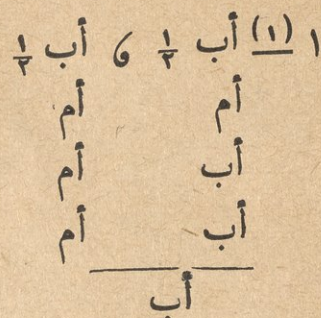 ١ (١) أب ١/٢ و أب ١/٢
أم أم
أب أم
أب أم
أب